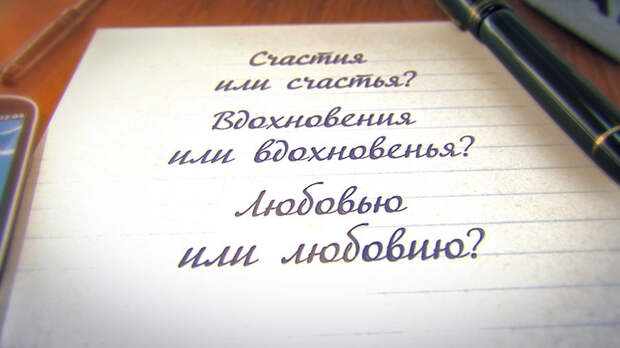 Счастия
или счастья?
Вдохновения
или вдохновенья?
Любовью
или любовию?